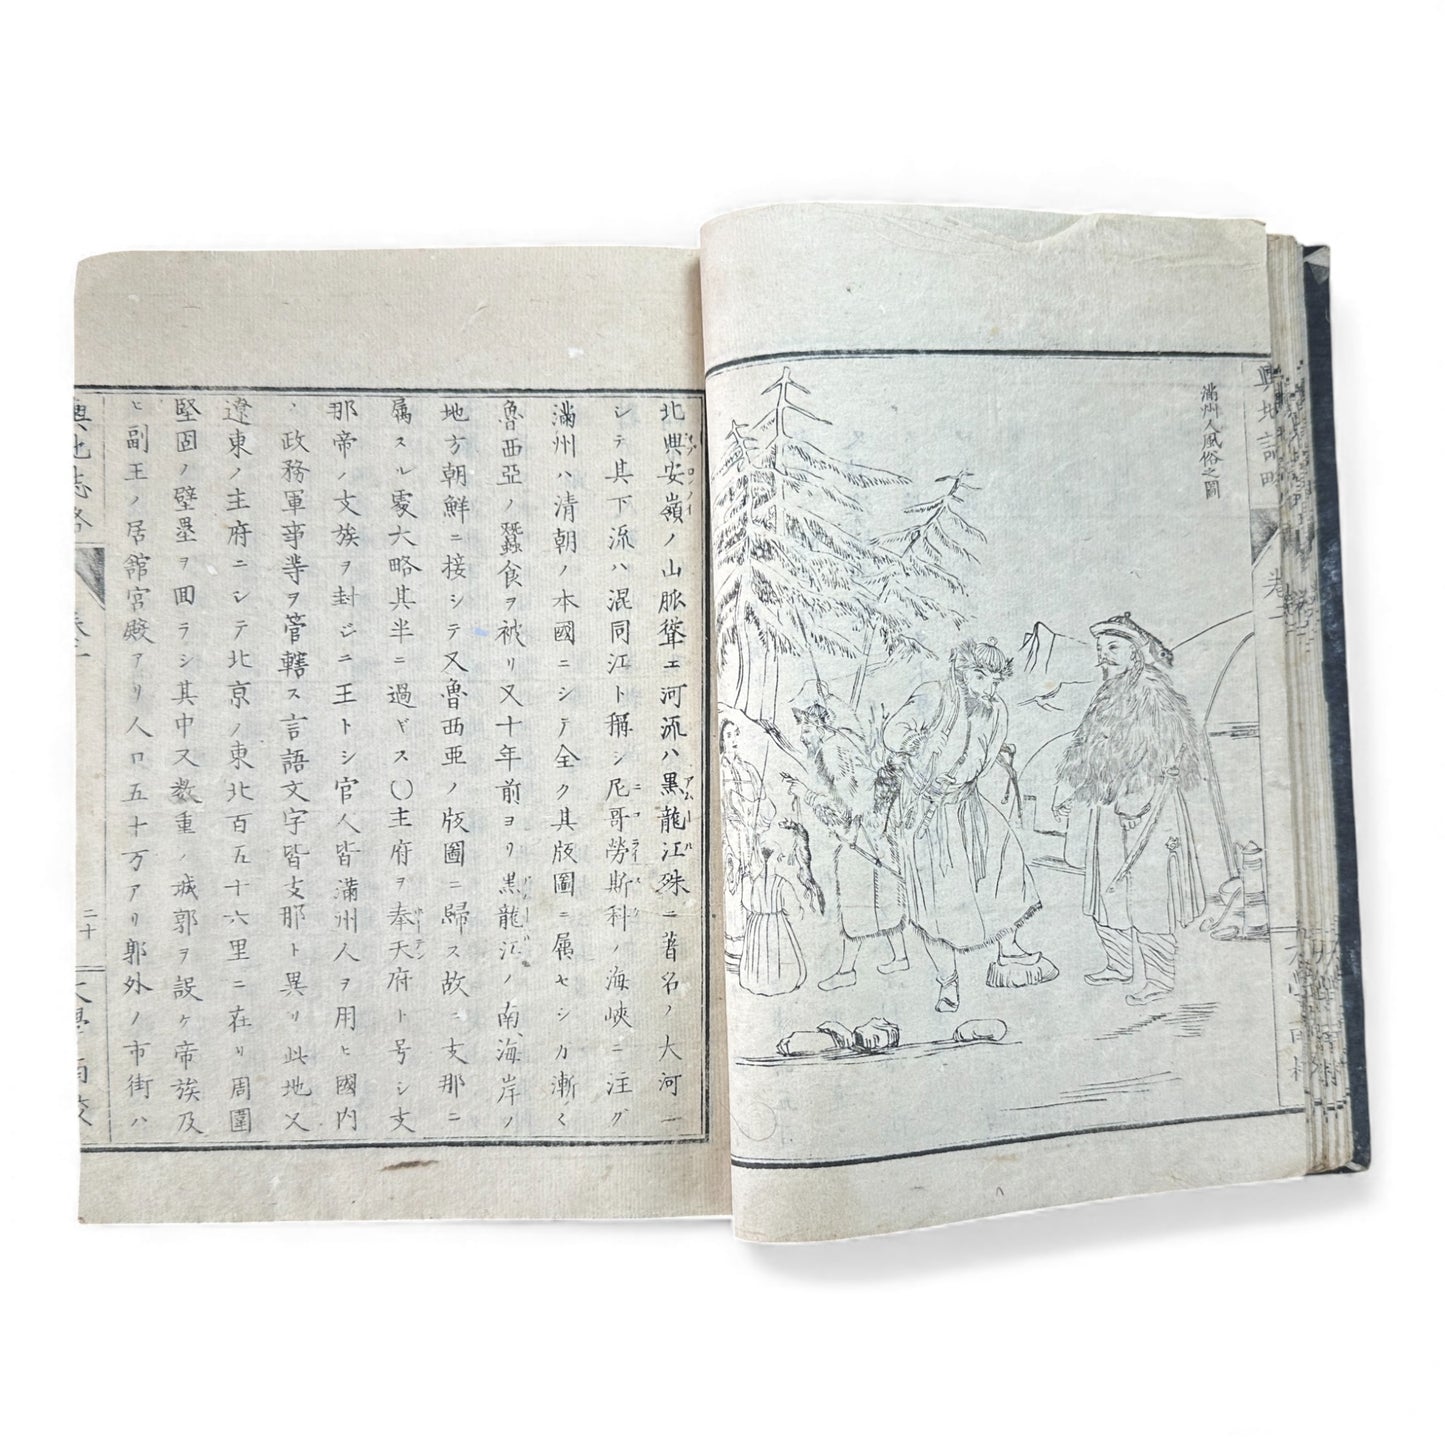 滿州人風俗之圖
北興安嶺ノ山脈聳エ河流ハ黒龍江殊ニ著名ノ大河ニ
シテ其下流ハ混同江ト稱シ尼哥勞斯科ノ海峽ニ注グ
滿州ハ清朝ノ本國ニシテ全ク其版圖ニ属セシカ漸ク
魯西亞ノ蠶食ヲ被リ又十年前ヨリ黒龍江ノ南海岸ノ
地方朝鮮ニ接シテ又魯西亜ノ版圖ニ歸ス故ニ支那ニ
属スル處大略其半ニ過ギス〇主府ヲ奉天府ト号シ支
那帝ノ支族ヲ封ジ王トシ官人皆滿州人ヲ用ヒ國内
ノ政務軍事等ヲ管轄ス言語文字皆支那ト異リ此地又
遼東ノ主府ニシテ北京ノ東北百五十六里ニ在リ周圍
堅固ノ壁塁ヲ囬ラシ其中又数重ノ城郭ヲ設ケ帝族及
ヒ副王ノ居館宮殿アリ人口五十万アリ郭外ノ市街ハ
輿地志略
二十
大學南校